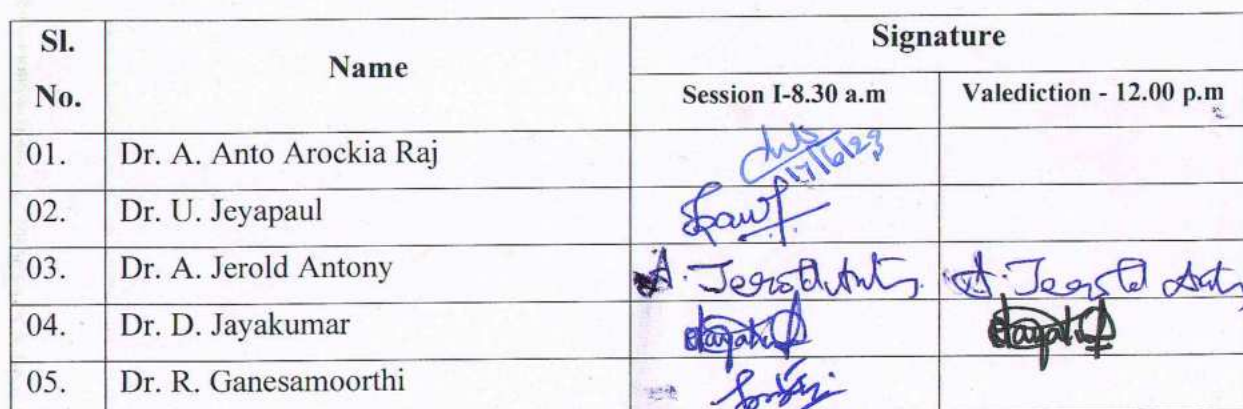 Sl. No. Name Signature
Session I-8.30 a.m Valediction - 12.00 p.m
01. Dr. A. Anto Arockia Raj 17/6/23
02. Dr. U. Jeyapaul
03. Dr. A. Jerold Antony A. Jerold Antony A. Jerold Antony
04. Dr. D. Jayakumar
05. Dr. R. Ganesamoorthi